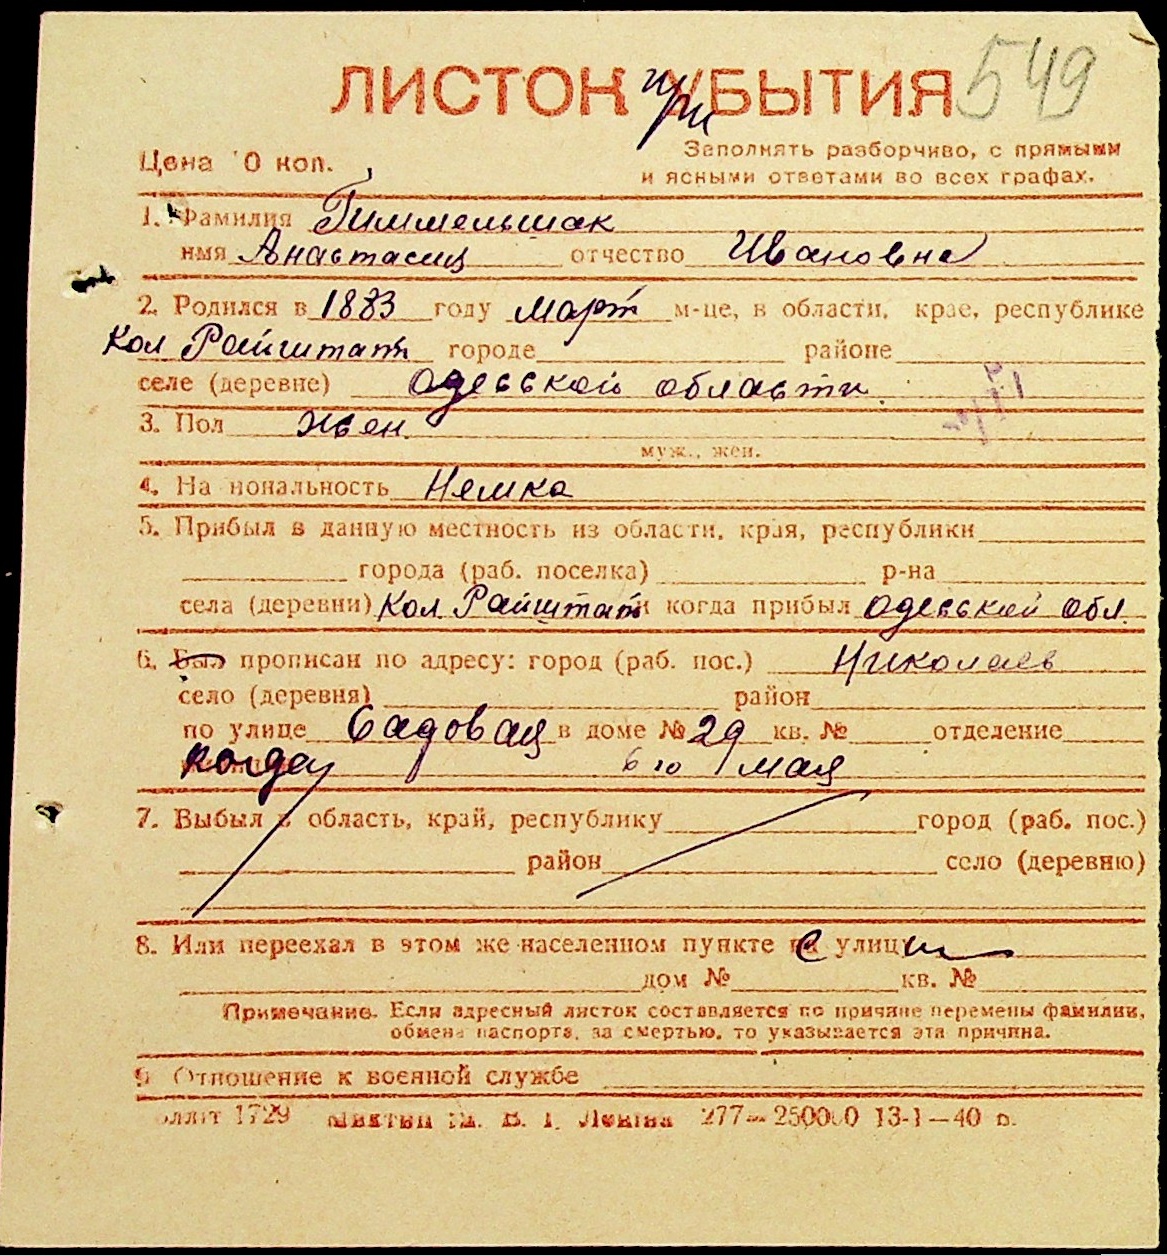 549
ЛИСТОК при УБЫТИЯ
Цена 10 коп.
Заполнять разборчиво, с прямыми
и ясными ответами во всех графах.
1. Фамилия Гиммельшак
имя Анастасия отчество Ивановна
2. Родился в 1883 году март м-це, в области, крае, республике
Кол Райштат городе районе
селе (деревне) Одесской области
3. Пол жен
муж., жен.
4. Национальность Немка
5. Прибыл в данную местность из области, края, республики
города (раб. поселка) р-на
села (деревни) Кол. Райштат и когда прибыл Одесской обл.
6. Был прописан по адресу: город (раб. пос.) Николаев
село (деревня) район
по улице Садовая в доме № 29 кв. № отделение
когда 6 го мая
7. Выбыл в область, край, республику город (раб. пос.)
район село (деревню)
8. Или переехал в этом же населенном пункте с улицы
дом № кв. №
Примечание. Если адресный листок составляется по причине перемены фамилии,
обмена паспорта, за смертью, то указывается эта причина.
9. Отношение к военной службе
1729 им. В. І. Леніна 277—250000 13-I—40 р.